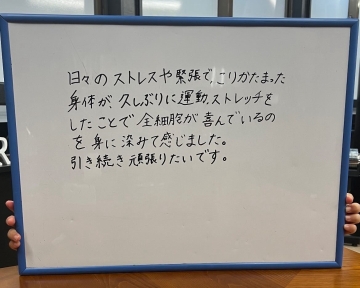 日々のストレスや緊張で、こりかたまった
身体が、久しぶりに運動、ストレッチを
したことで全細胞が喜んでいるの
を身に染みて感じました。
引き続き頑張りたいです。
R